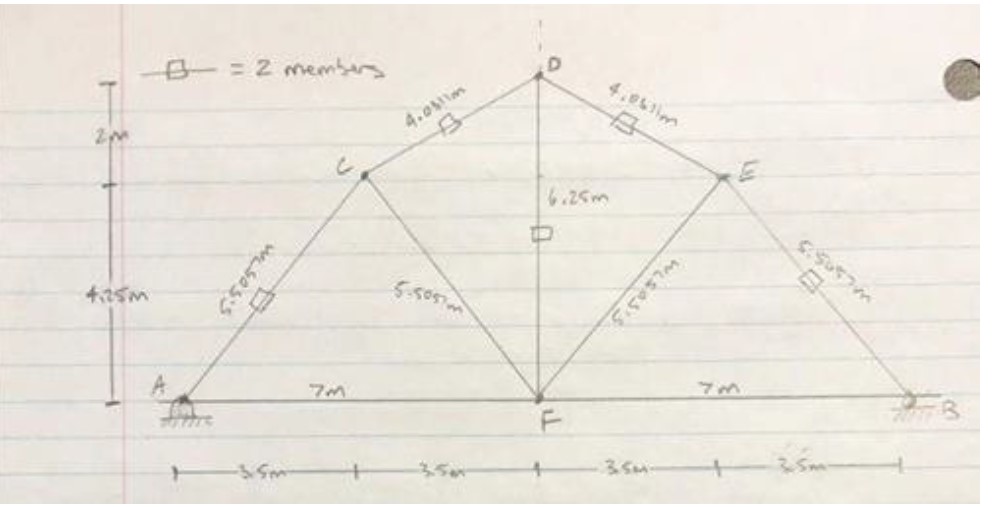 = 2 members
D
4.0311m
4.0311m
2m
C
E
6.25m
5.5057m
5.5057m
5.5057m
5.5057m
4.25m
A
7m
7m
F
B
3.5m
3.5m
3.5m
3.5m